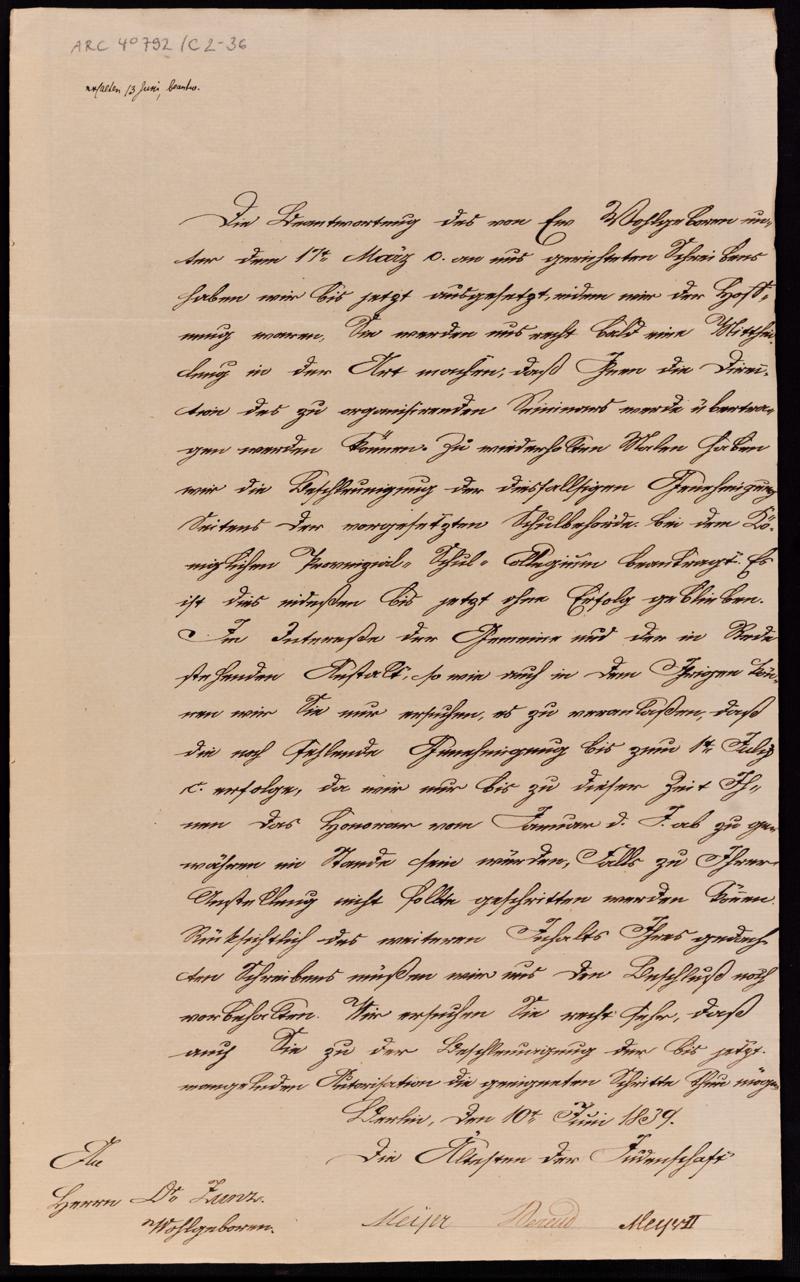 ARC 4° 792 /C2-36
erhalten 13 Juni, beantw.
Die Beantwortung des von Ew Wohlgeboren un-
ter dem 17t. März c. an uns gerichteten Schreibens
haben wir bis jetzt ausgesetzt, indem wir der Hoff-
nung waren, Sie werden uns recht bald eine Mitthei-
lung in der Art machen, daß Ihnen die Direc-
tion des zu organisirenden Seminars werde übertra-
gen werden können. Zu wiederholten Malen haben
wir die Beschleunigung der diesfallsigen Genehmigung
Seitens der vorgesetzten Schulbehörde bei dem Kö-
niglichen Provinzial-Schul-Collegium beantragt. Es
ist dies indeßen bis jetzt ohne Erfolg geblieben.
Im Intereße der Gemeine und der in Rede
stehenden Anstalt, so wie auch in dem Ihrigen kön-
nen wir Sie nur ersuchen, es zu veranlaßen, daß
die noch fehlende Genehmigung bis zum 1t. July
c. erfolge, da wir nur bis zu dieser Zeit Ih-
nen das Honorar vom Januar d. J. ab zu ge-
währen im Stande sein würden, Falls zu Ihrer
Anstellung nicht sollte geschritten werden können.
Rücksichtlich des weiteren Inhalts Ihres gedach-
ten Schreibens müßen wir uns den Beschluß noch
vorbehalten. Wir ersuchen Sie recht sehr, daß
auch Sie zu der Beschleunigung der bis jetzt
mangelnden Autorisation die geeigneten Schritte thun mögen
Berlin, den 10t. Juni 1839.
Die Ältesten der Judenschaft
An
Herrn Dr. Zunz.
Wohlgeboren.
Meyer Berend Meyer II